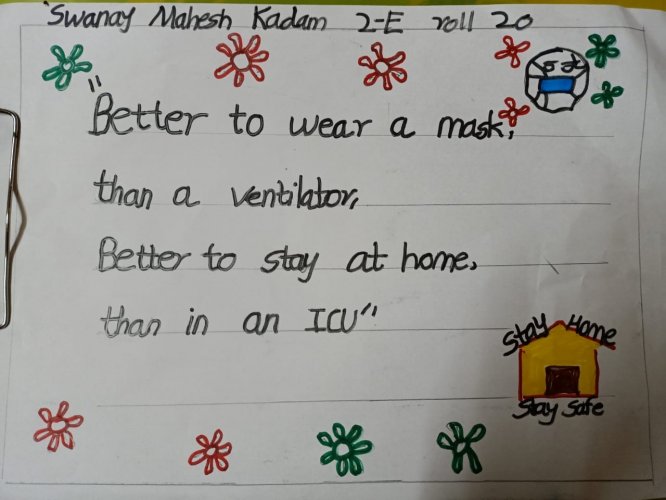 Swanay Mahesh Kadam 2-E roll 20
"Better to wear a mask,
than a ventilator,
Better to stay at home,
than in an ICU"
Stay Home
Stay Safe